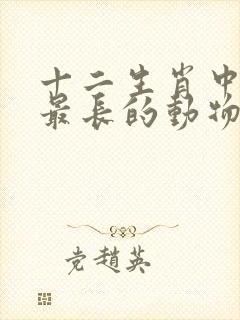 十二生肖中
最長的動物
党趙英